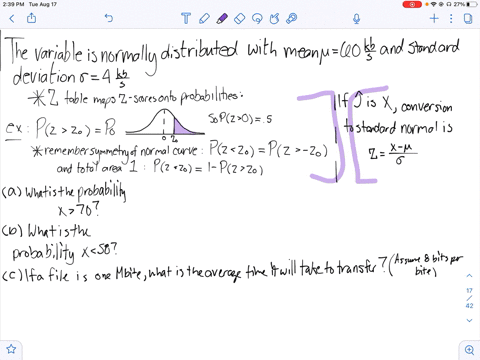 2:39 PM Tue Aug 17
27%
The variable is normally distributed with mean μ = 60 kb/s and standard
deviation σ = 4 kb/s
* Z table maps Z-scores onto probabilities:
ex: P(Z > Z₀) = P₀
0 Z₀
So P(Z>0) = .5
* remember symmetry of normal curve: P(Z < Z₀) = P(Z > -Z₀)
and total area 1 : P(Z < Z₀) = 1 - P(Z > Z₀)
If J is X, conversion
to standard normal is
Z = x-μ/σ
(a) What is the probability
x > 70?
(b) What is the
probability x < 50?
(c) If a file is one Mbite, what is the average time it will take to transfer? (Assume 8 bits per
bite)
17
/
42